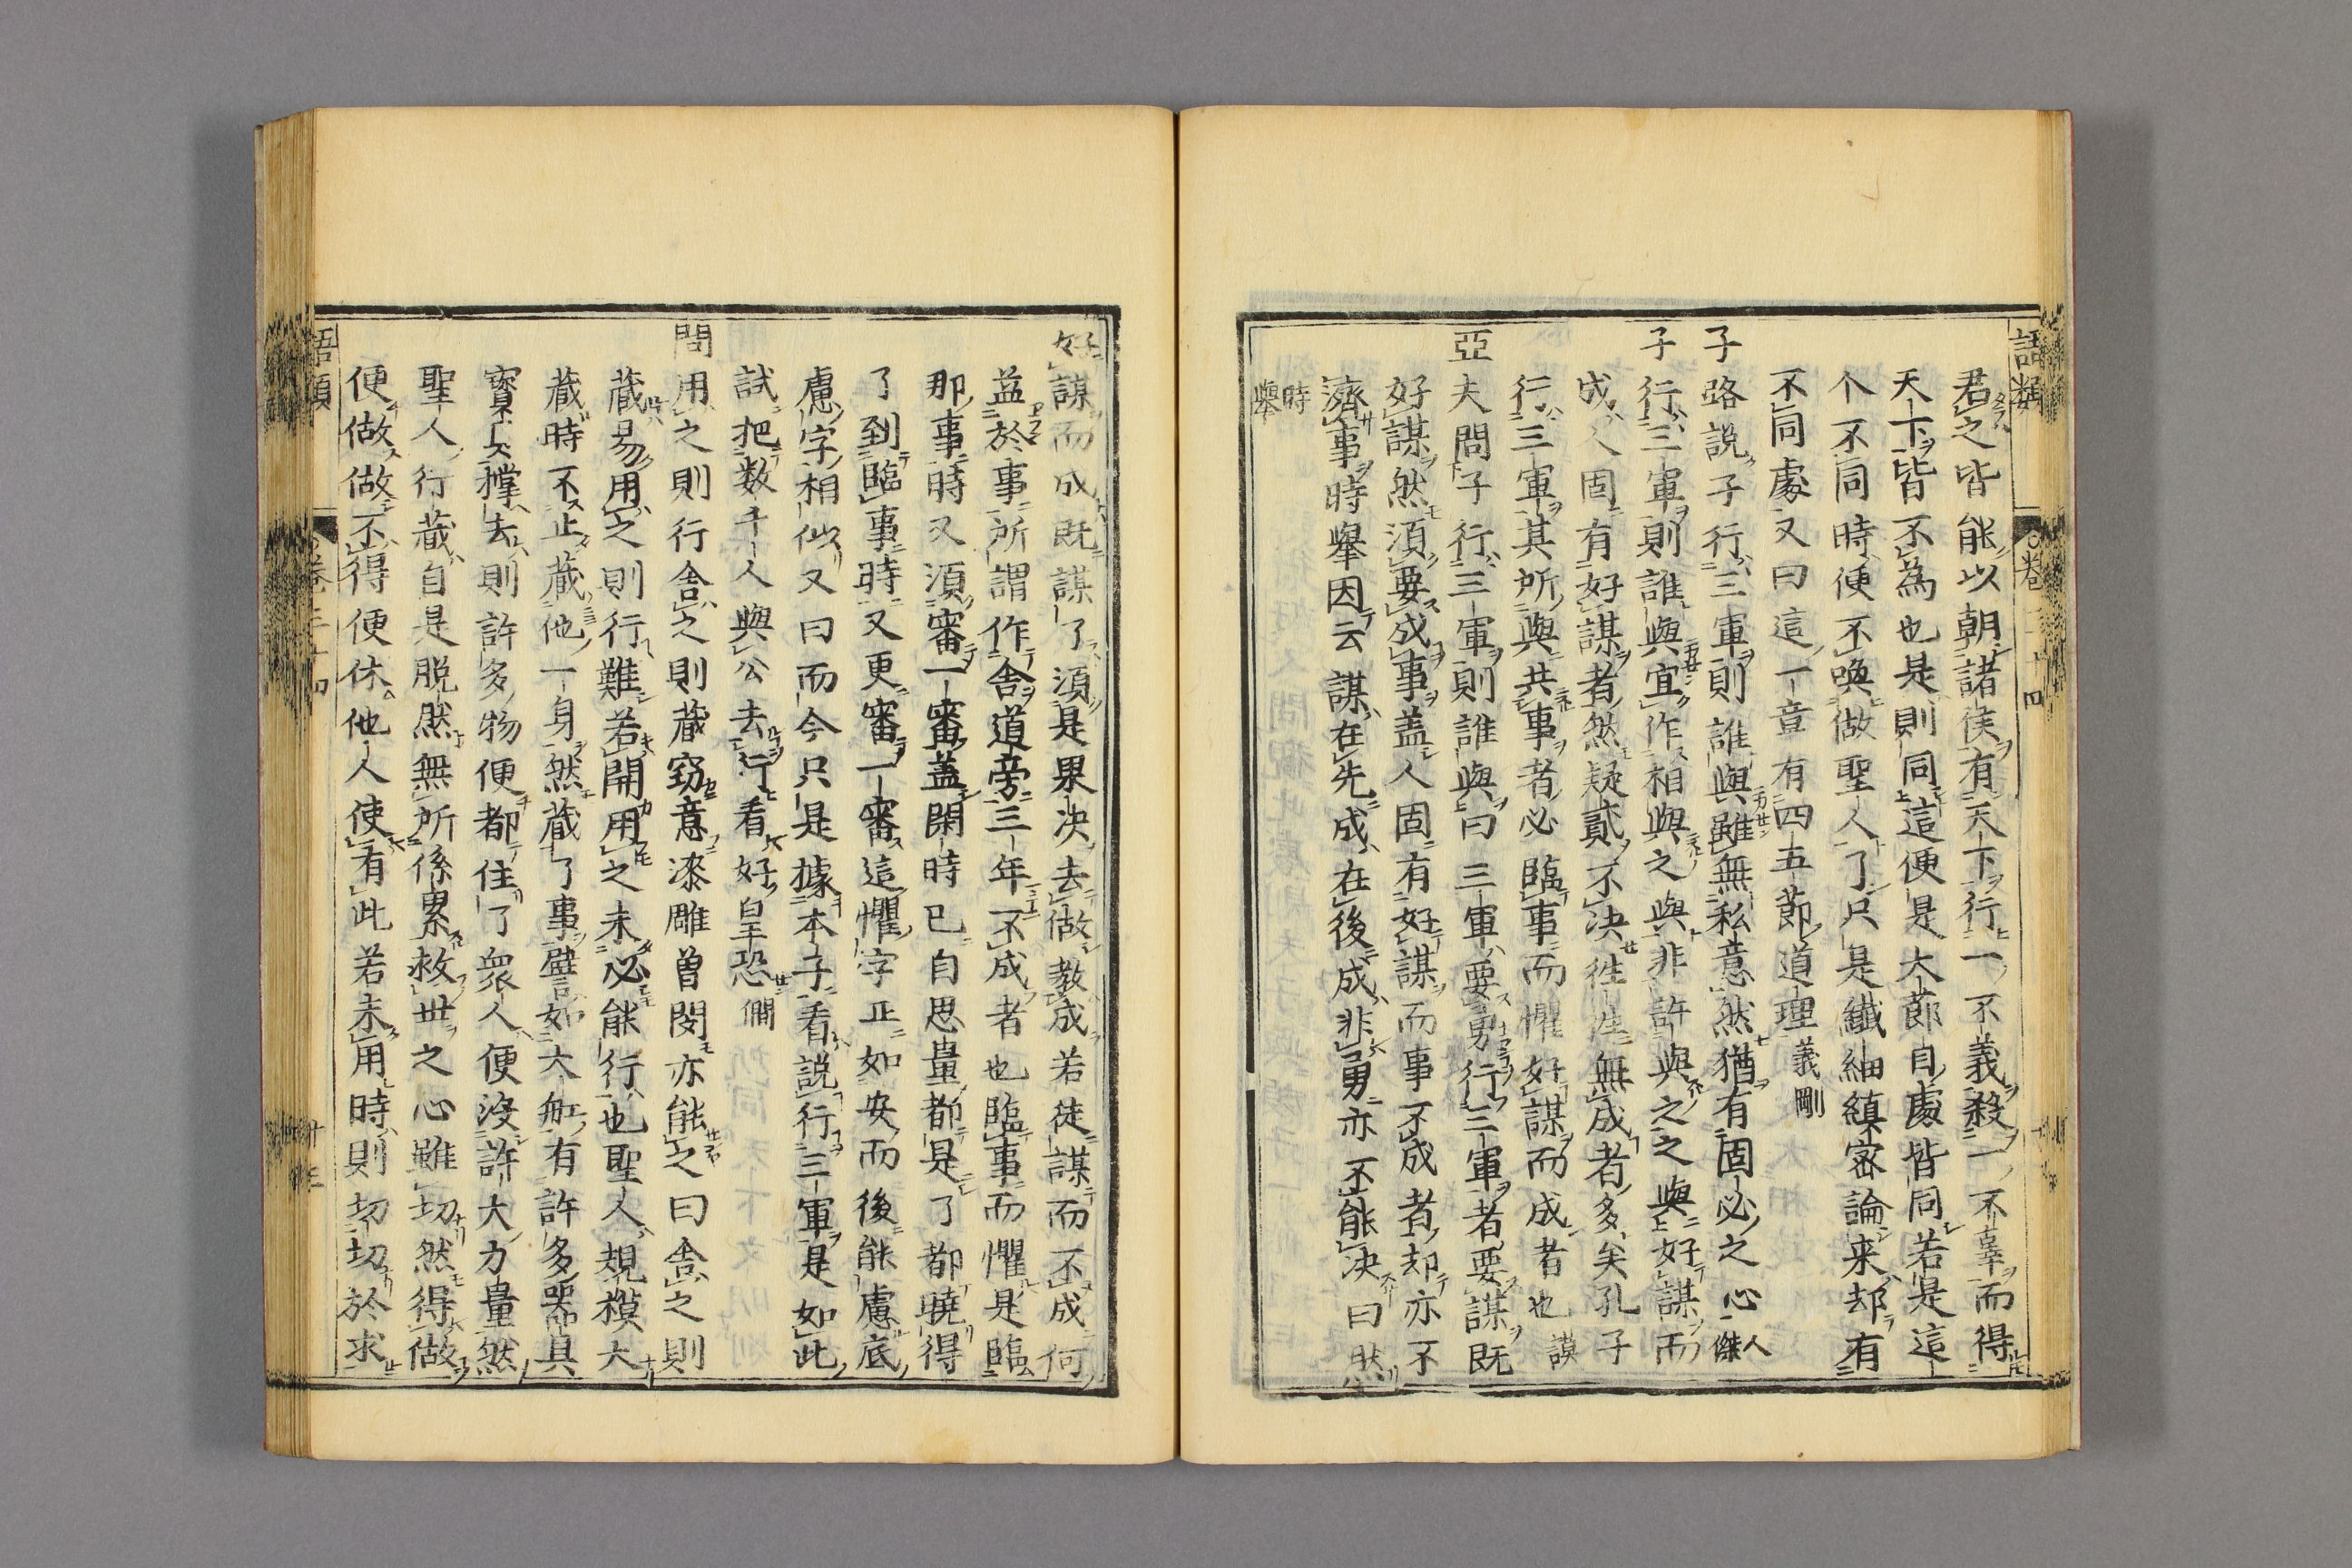 語類
卷三十四
君之皆能以朝諸侯有天下行一不義殺一不辜而得
天下皆不為也是則同這便是大節自處皆同若是這
个不同時便不喚做聖人了只是纖細縝密論来却有
不同處又曰這一章有四五節道理義剛
子路說子行三軍則誰與雖無私意然猶有固必之心人傑
子行三軍則誰與宜作相與之與非許與之之與好謀而
成人固有好謀者然疑貳不決徃徃無成者多矣孔子
行三軍其所與共事者必臨事而懼好謀而成者也謨
亞夫問子行三軍則誰與曰三軍要勇行三軍者要謀既
好謀然須要成事盖人固有好謀而事不成者却亦不
濟事時舉因云謀在先成在後成非勇亦不能決曰然
時舉
好謀而成既謀了須是果决去做教成若徒謀而不成何
益於事所謂作舎道旁三年不成者也臨事而懼是臨
那事時又須審一審蓋閑時已自思量都是了都曉得
了到臨事時又更審一審這懼字正如安而後能慮底
慮字相似又曰而今只是據本子看說行三軍是如此
試把数千人與公去行看好皇恐僩
問用之則行舎之則蔵窃意漆雕曽閔亦能之曰舎之則
蔵易用之則行難若開用之未必能行也聖人規模大
蔵時不止蔵他一身然蔵了事譬如大舡有許多器具
寳貝撑去則許多物便都住了衆人便没許大力量然
聖人行蔵自是脱然無所係累救丗之心雖切然得做
便做做不得便休他人使有此若未用時則切切於求
語類
卷三十四